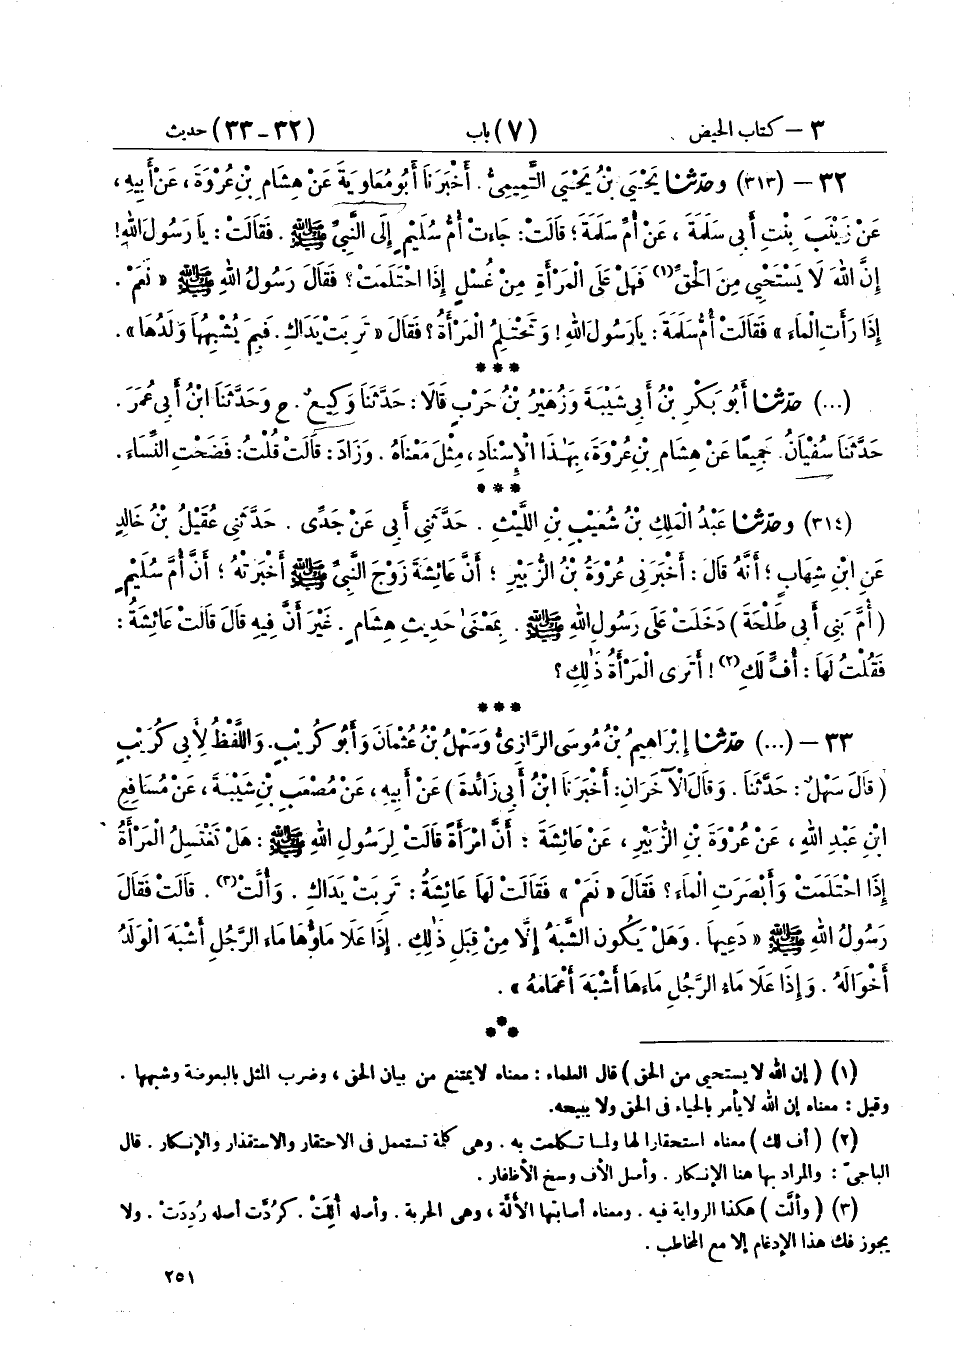 ٣ – كتاب الحيض (٧) باب (٣٢ - ٣٣) حديث
٣٢ – (٣١٣) وحدثنا يَحْيَى بْنُ يَحْيَى التَّمِيمِىُّ . أَخْبَرَنَا أَبُو مُعَاوِيَةَ عَنْ هِشَامِ بْنِ عُرْوَةَ ، عَنْ أَبِيهِ ،
عَنْ زَيْنَبَ بِنْتِ أَبِى سَلَمَةَ ، عَنْ أُمِّ سَلَمَةَ ؛ قَالَتْ : جَاءَتْ أُمُّ سُلَيْمٍ إِلَى النَّبِىِّ ﷺ . فَقَالَتْ : يَا رَسُولَ اللهِ !
إِنَّ اللهَ لَا يَسْتَحْيِى مِنَ الْحَقِّ (١) فَهَلْ عَلَى الْمَرْأَةِ مِنْ غُسْلٍ إِذَا احْتَلَمَتْ ؟ فَقَالَ رَسُولُ اللهِ ﷺ « نَعَمْ .
إِذَا رَأَتِ الْمَاءَ » فَقَالَتْ أُمُّ سَلَمَةَ : يَا رَسُولَ اللهِ ! وَتَحْتَلِمُ الْمَرْأَةُ ؟ فَقَالَ « تَرِبَتْ يَدَاكِ . فَبِمَ يُشْبِهُهَا وَلَدُهَا » .
***
(...) حدثنا أَبُو بَكْرِ بْنُ أَبِى شَيْبَةَ وَزُهَيْرُ بْنُ حَرْبٍ قَالَا : حَدَّثَنَا وَكِيعٌ . ح وَحَدَّثَنَا ابْنُ أَبِى عُمَرَ .
حَدَّثَنَا سُفْيَانُ . جَمِيعًا عَنْ هِشَامِ بْنِ عُرْوَةَ ، بِهَـٰذَا الْإِسْنَادِ ، مِثْلَ مَعْنَاهُ . وَزَادَ : قَالَتْ قُلْتُ : فَضَحْتِ النِّسَاءَ .
***
(٣١٤) وحدثنا عَبْدُ الْمَلِكِ بْنُ شُعَيْبِ بْنِ اللَّيْثِ . حَدَّثَنِى أَبِى عَنْ جَدِّى . حَدَّثَنِى عُقَيْلُ بْنُ خَالِدٍ
عَنِ ابْنِ شِهَابٍ ؛ أَنَّهُ قَالَ : أَخْبَرَنِى عُرْوَةُ بْنُ الزُّبَيْرِ ؛ أَنَّ عَائِشَةَ زَوْجَ النَّبِىِّ ﷺ أَخْبَرَتْهُ ؛ أَنَّ أُمَّ سُلَيْمٍ
( أُمَّ بَنِى أَبِى طَلْحَةَ ) دَخَلَتْ عَلَى رَسُولِ اللهِ ﷺ . بِمَعْنَىٰ حَدِيثِ هِشَامٍ . غَيْرَ أَنَّ فِيهِ قَالَ قَالَتْ عَائِشَةُ :
فَقُلْتُ لَهَا : أُفٍّ لَكِ (٢) ! أَتَرَى الْمَرْأَةُ ذَٰلِكِ ؟
***
٣٣ – (...) حدثنا إِبْرَاهِيمُ بْنُ مُوسَى الرَّازِىُّ وَسَهْلُ بْنُ عُثْمَانَ وَأَبُو كُرَيْبٍ . وَاللَّفْظُ لِأَبِى كُرَيْبٍ
( قَالَ سَهْلٌ : حَدَّثَنَا . وَقَالَ الْآخَرَانِ : أَخْبَرَنَا ابْنُ أَبِى زَائِدَةَ ) عَنْ أَبِيهِ ، عَنْ مُصْعَبِ بْنِ شَيْبَةَ ، عَنْ مُسَافِعِ
ابْنِ عَبْدِ اللهِ ، عَنْ عُرْوَةَ بْنِ الزُّبَيْرِ ، عَنْ عَائِشَةَ ؛ أَنَّ امْرَأَةً قَالَتْ لِرَسُولِ اللهِ ﷺ : هَلْ تَغْتَسِلُ الْمَرْأَةُ
إِذَا احْتَلَمَتْ وَأَبْصَرَتِ الْمَاءَ ؟ فَقَالَ « نَعَمْ » فَقَالَتْ لَهَا عَائِشَةُ : تَرِبَتْ يَدَاكِ . وَأُلَّتْ (٣) . قَالَتْ فَقَالَ
رَسُولُ اللهِ ﷺ « دَعِيهَا . وَهَلْ يَكُونُ الشَّبَهُ إِلَّا مِنْ قِبَلِ ذَٰلِكِ . إِذَا عَلَا مَاؤُهَا مَاءَ الرَّجُلِ أَشْبَهَ الْوَلَدُ
أَخْوَالَهُ . وَإِذَا عَلَا مَاءُ الرَّجُلِ مَاءَهَا أَشْبَهَ أَعْمَامَهُ » .
***
(١) ( إن الله لا يستحيى من الحق ) قال العلماء : معناه لا يمتنع من بيان الحق ، وضرب المثل بالبعوضة وشبهها .
وقيل : معناه إن الله لا يأمر بالحياء فى الحق ولا يبيحه.
(٢) ( أف لك ) معناه استحقارا لها ولما تكلمت به . وهى كلمة تستعمل فى الاحتقار والاستقذار والإنكار . قال
الباجىّ : والمراد بها هنا الإنكار . وأصل الأف وسخ الأظفار .
(٣) ( وألَّت ) هكذا الرواية فيه . ومعناه أصابتها الألَّة ، وهى الحربة . وأصله أُلِلَتْ . كرُدَّت أصله رُدِدَتْ . ولا
يجوز فك هذا الإدغام إلا مع المخاطب .
٢٥١